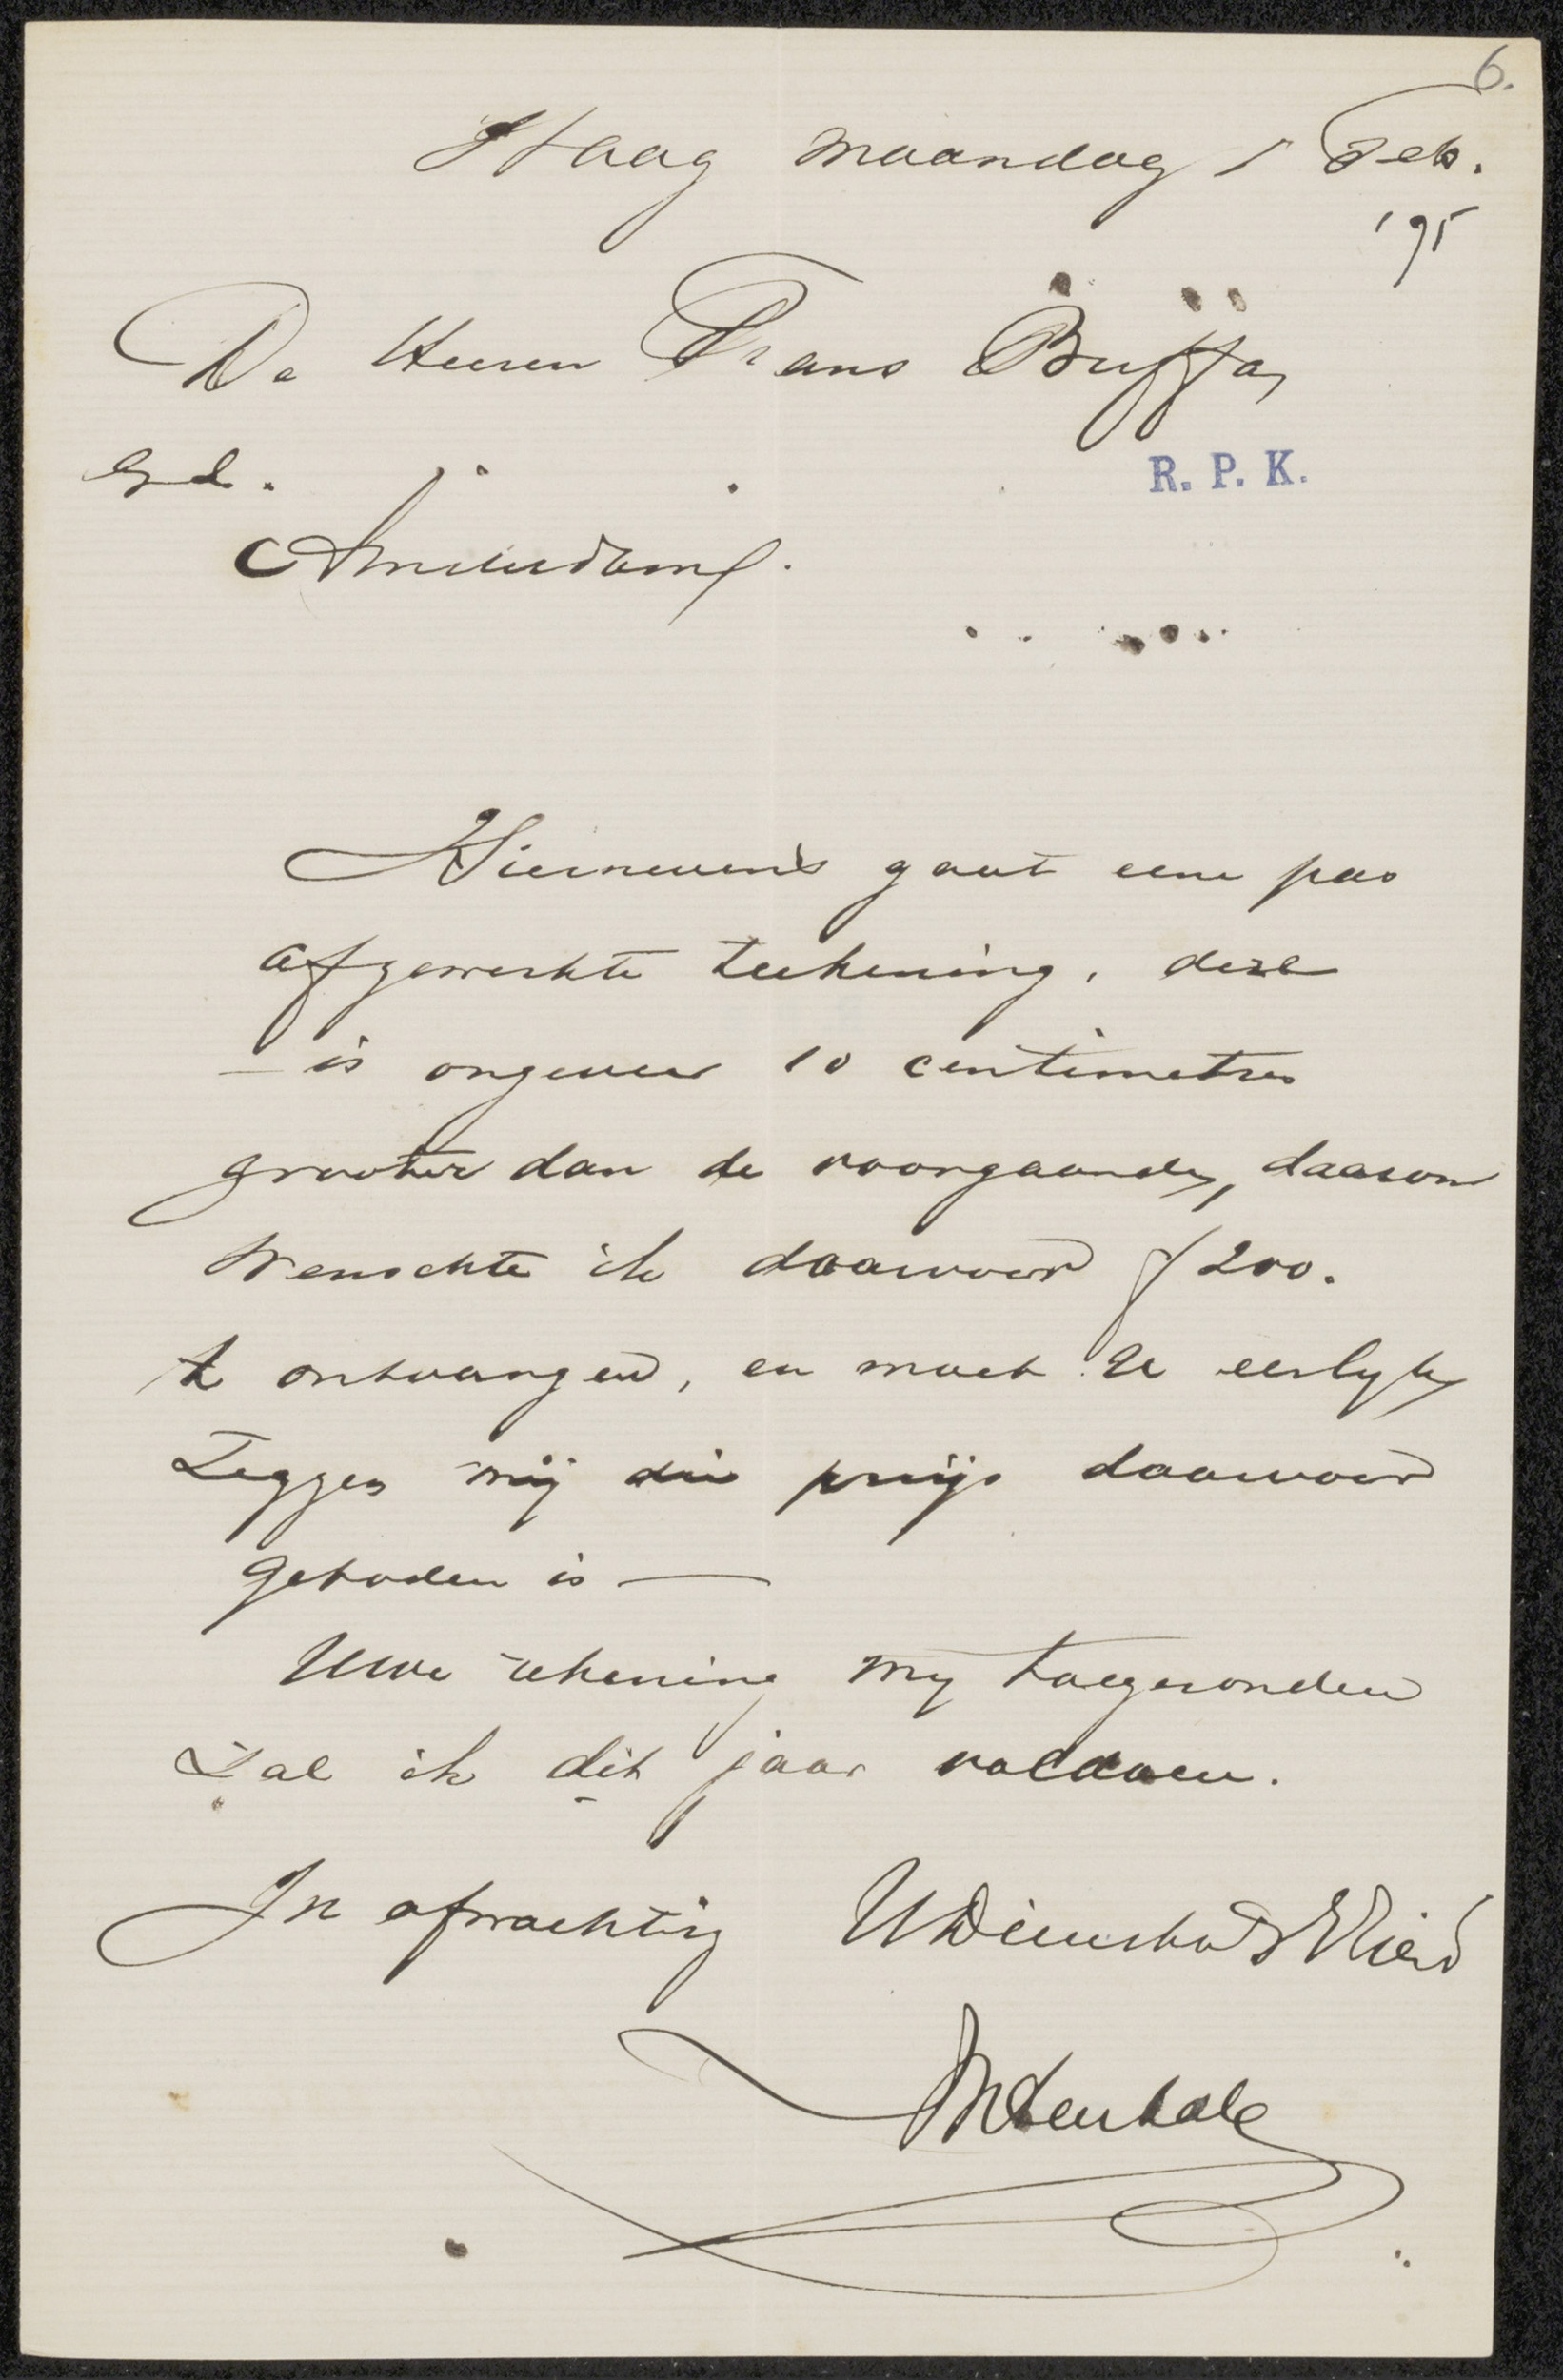 6.
Haag maandag 5 Feb.
'95
De Heeren Frans Buffa,
R. P. K.
Amsterdam.
Hiernevens gaat eene pas
afgewerkte teekening, deze
is ongeveer 10 centimetres
grooter dan de voorgaande, daarom
wenschte ik daarvoor f 200.
te ontvangen, en moet U eerlyk
zeggen mij die prijs daarvoor
geboden is —
Uwe rekening my toegezonden
zal ik dit jaar voldoen.
In afwachting UWDienstw Vriend